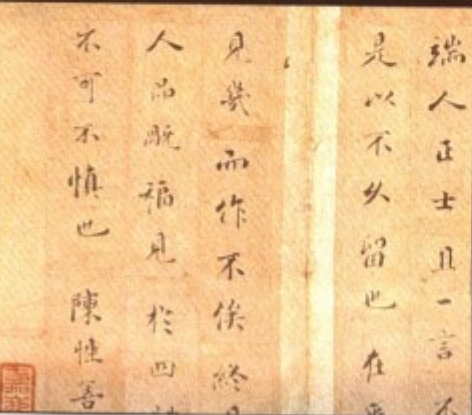 端人正士且一言
是以不久留也在
見幾而作不俟終
人品既褊見於四
不可不慎也陳性善